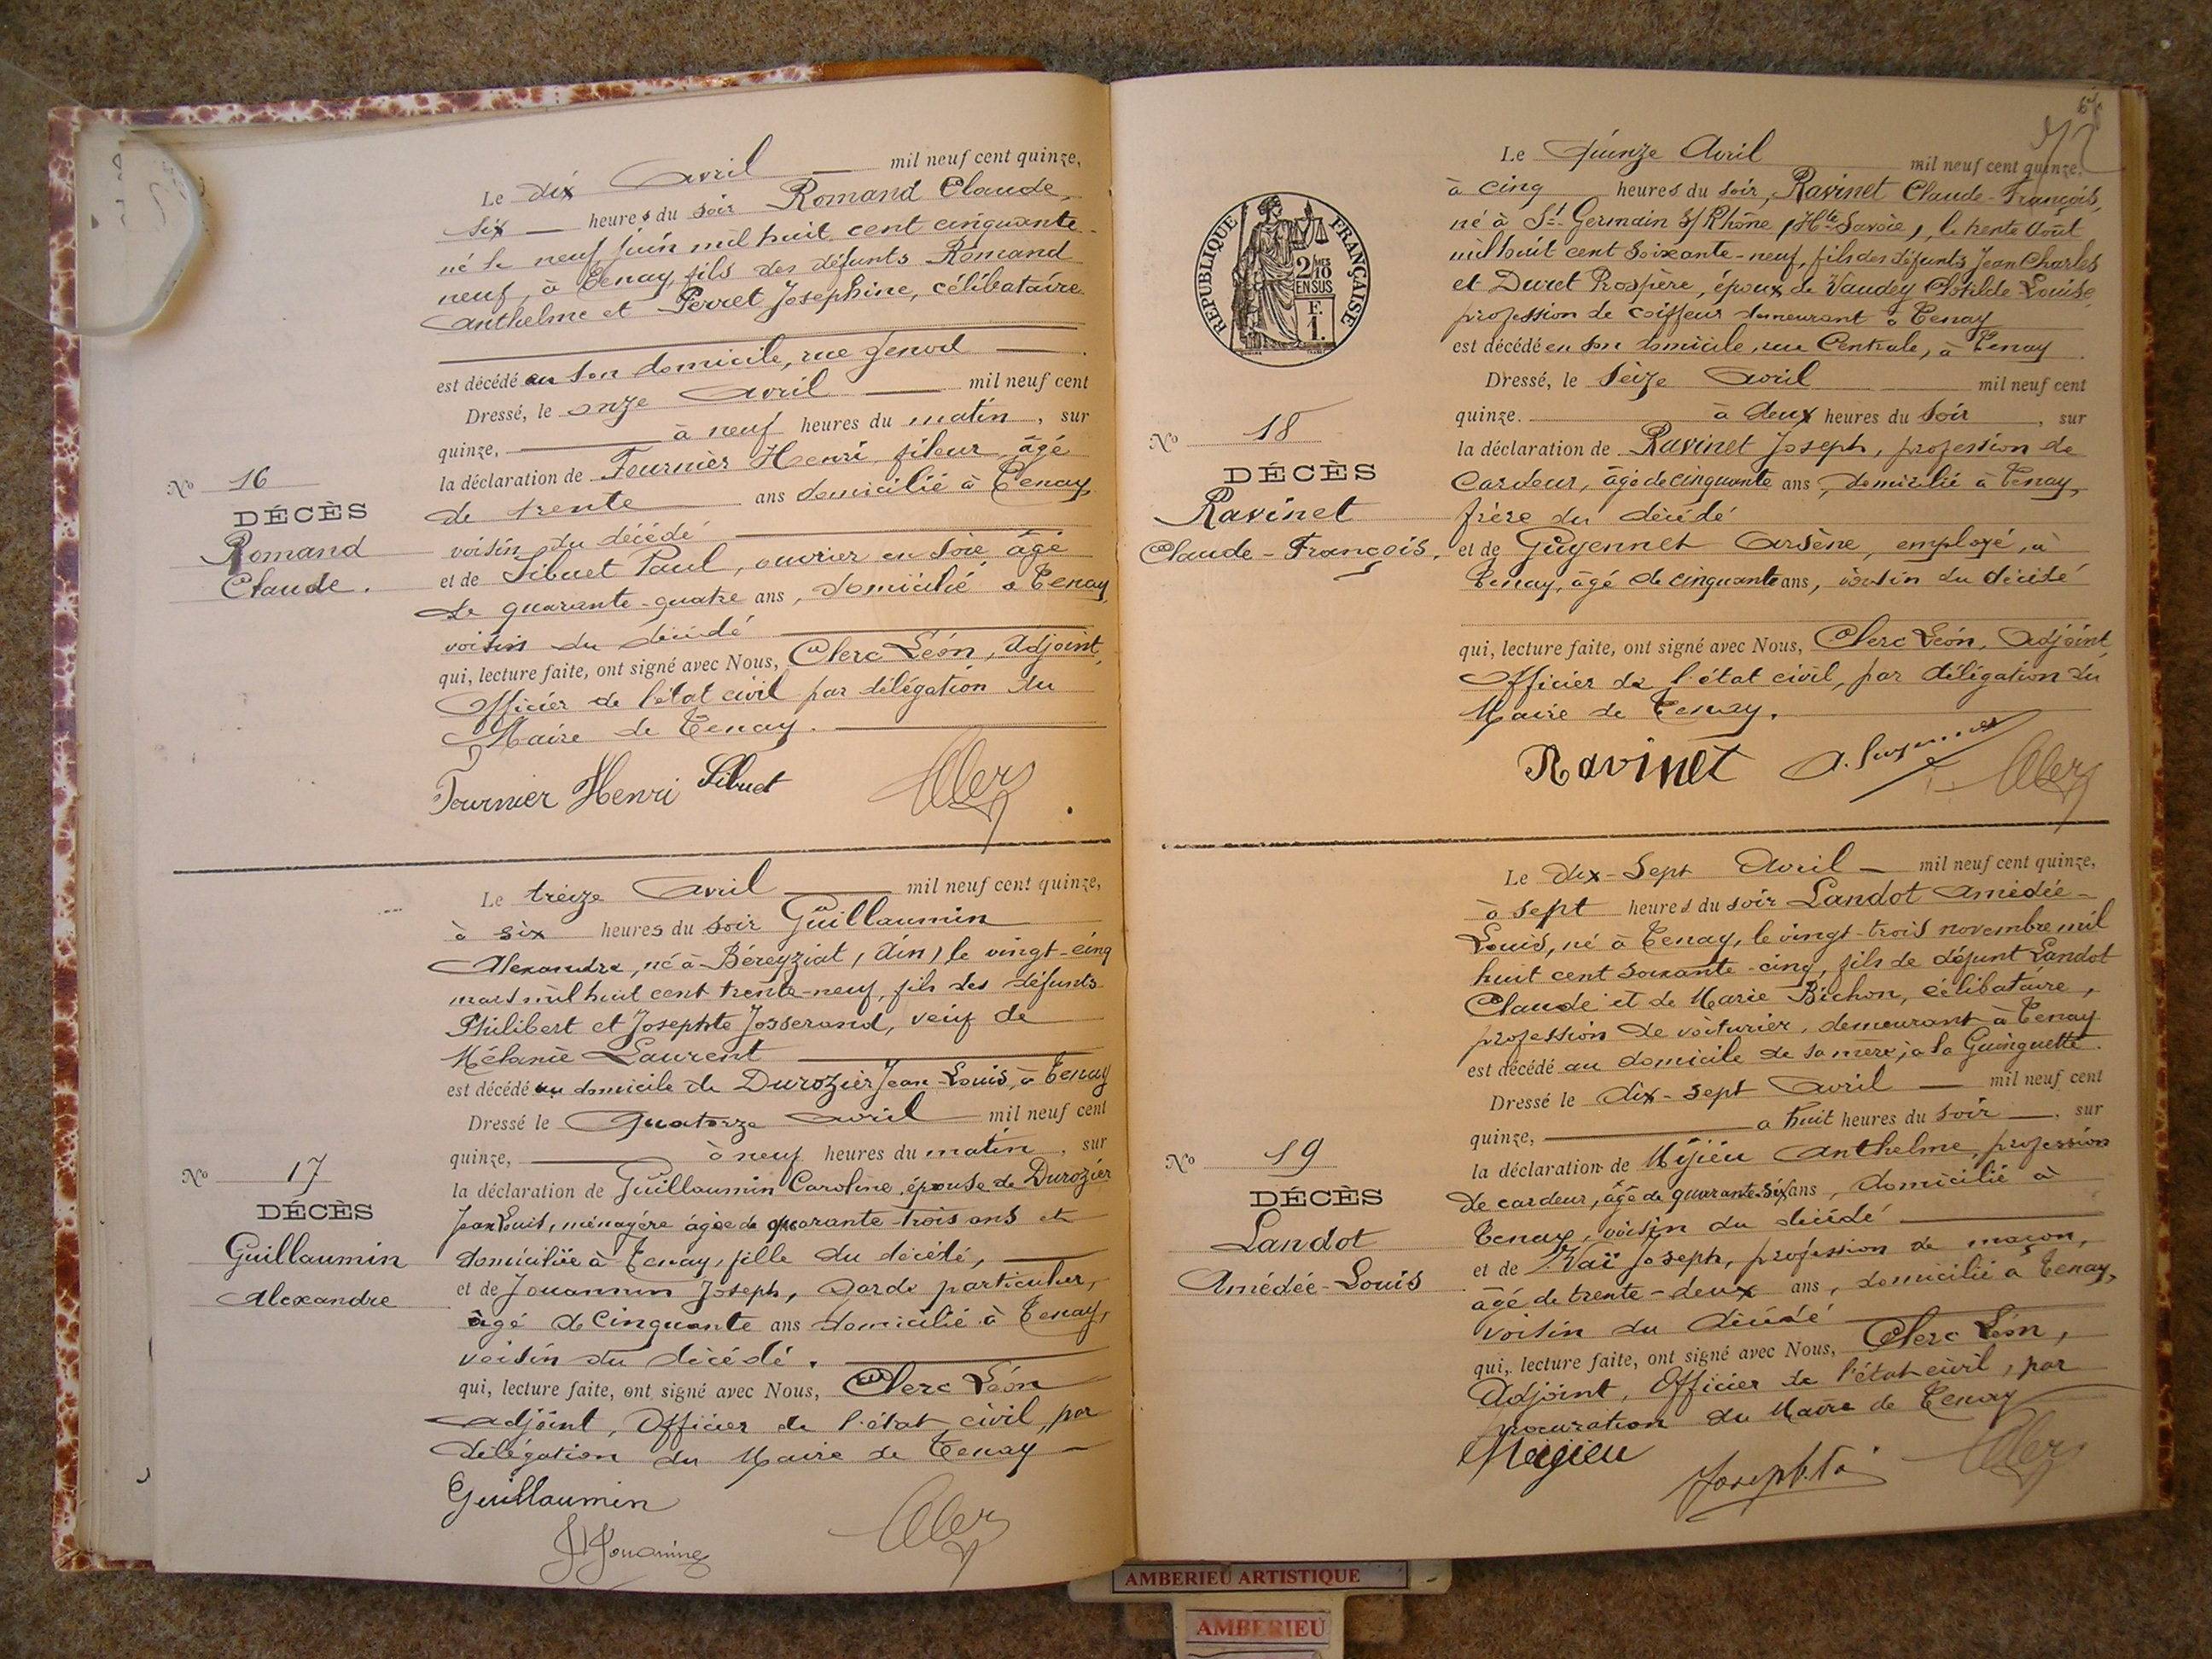 Le dix Avril mil neuf cent quinze,
six heures du soir Romand Claude,
né le neuf juin mil huit cent cinquante
neuf, à Tenay, fils des défunts Romand
Anthelme et Perret Josephine, célibataire
est décédé en son domicile, rue
Dressé, le onze Avril mil neuf cent
quinze, à neuf heures du matin, sur
la déclaration de Fournier Henri fileur, âgé
de trente ans domicilié à Tenay
voisin du décédé
et de Sibuet Paul, ouvrier en soie âgé
de quarante-quatre ans, domicilié à Tenay,
voisin du décédé
qui, lecture faite, ont signé avec Nous, Clerc Léon, Adjoint,
Officier de l'état civil par délégation du
Maire de Tenay.
Fournier Henri Sibuet Clerc
No 16
DÉCÈS
Romand
Claude.
Le treize Avril mil neuf cent quinze,
à six heures du soir Guillaumin
Alexandre, né à Béreyziat, (Ain) le vingt-cinq
mars mil huit cent trente-neuf, fils des défunts
Philibert et Josephte Josserand, veuf de
Mélanie Laurent
est décédé au domicile de Durozier Jean-Louis, à Tenay
Dressé le Quatorze Avril mil neuf cent
quinze, à neuf heures du matin, sur
la déclaration de Guillaumin Caroline, épouse de Durozier
Jean Louis, ménagère âgée de quarante-trois ans et
domiciliée à Tenay, fille du décédé,
et de Jouannin Joseph, Garde particulier,
âgé de Cinquante ans domicilié à Tenay,
voisin du décédé.
qui, lecture faite, ont signé avec Nous, Clerc Léon
adjoint, Officier de l'état civil, par
délégation du Maire de Tenay
Guillaumin
Clerc
No 17
DÉCÈS
Guillaumin
Alexandre
Le Quinze Avril mil neuf cent quinze,
à cinq heures du soir, Ravinet Claude-François,
né à St Germain s/ Rhône, (Hte Savoie), le trente Août
mil huit cent soixante-neuf, fils des défunts Jean Charles
et Duret Prospère, époux de Vaudey Clotilde-Louise
profession de coiffeur demeurant à Tenay
est décédé en son domicile, rue Centrale, à Tenay
Dressé, le Seize Avril mil neuf cent
quinze. à deux heures du soir, sur
la déclaration de Ravinet Joseph, profession de
Cardeur, âgé de cinquante ans, domicilié à Tenay,
frère du décédé
et de Guyennet Arsène, employé, à
Tenay, âgé de cinquante ans, voisin du décédé
qui, lecture faite, ont signé avec Nous, Clerc Léon, Adjoint
Officier de l'état civil, par délégation du
Maire de Tenay.
Ravinet Clerc
RÉPUBLIQUE FRANÇAISE
2/10 MES
EN SUS
F.
1.
No 18
DÉCÈS
Ravinet
Claude-François.
Le dix-sept Avril mil neuf cent quinze,
à sept heures du soir Landot Amédée-
Louis, né à Tenay, le vingt-trois novembre mil
huit cent soixante-cinq, fils de défunt Landot
Claude et de Marie Bichon, célibataire,
profession de voiturier, demeurant à Tenay
est décédé au domicile de sa mère, à la Guinguette.
Dressé le dix-sept Avril mil neuf cent
quinze, à huit heures du soir, sur
la déclaration de Mijieu Anthelme, profession
de cardeur, âgé de quarante-six ans, domicilié à
Tenay, voisin du décédé
et de Joseph, profession de maçon,
âgé de trente-deux ans, domicilié à Tenay,
voisin du décédé
qui, lecture faite, ont signé avec Nous, Clerc Léon,
Adjoint, Officier de l'état civil, par
procuration du Maire de Tenay
Clerc
No 19
DÉCÈS
Landot
Amédée-Louis
AMBERIEU ARTISTIQUE
AMBERIEU